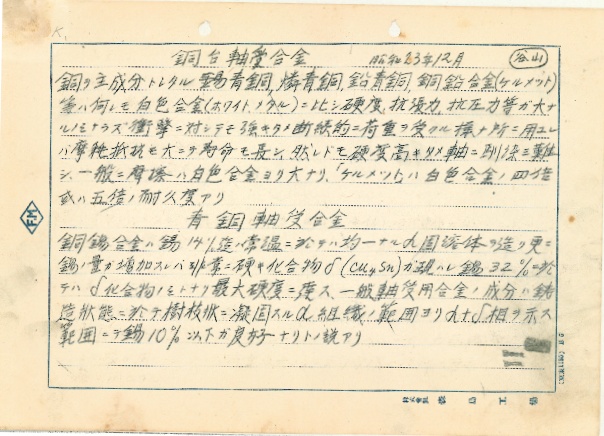 K.
銅台軸受合金 昭和23年12月 谷山
銅ヲ主成分トシタル 錫青銅, 燐青銅, 鉛青銅, 銅鉛合金(ケルメット)
等ハ何レモ白色合金(ホワイトメタル)ニ比シ硬度, 抗張力, 抗圧力等ガ大ナ
ルノミナラズ衝撃ニ対シテモ強キタメ断続的ニ荷重ヲ受クル様ナ所ニ用ユレ
バ摩耗抵抗モ大ニテ寿命モ長シ, 然レドモ硬度高キタメ軸ニ馴染ミ難
シ, 一般ニ摩擦ハ白色合金ヨリ大ナリ,「ケルメット」ハ白色合金ノ四倍
或ハ五倍ノ耐久度アリ
青銅軸受合金
銅錫合金ハ錫14%迄ハ常温ニ於テハ均一ナルα固溶体ヲ造リ更ニ
錫ノ量ガ増加スレバ非常ニ硬キ化合物δ(Cu4Sn)ガ現ハレ錫32%ニ於
テハδ化合物ノミトナリ最大硬度ニ達ス. 一般軸受用合金ノ成分ハ鋳
造状態ニ於テ樹枝状ニ凝固スルα組織ノ範囲ヨリα+δ相ヲ示ス
範囲ニテ錫10%以下ガ良好ナリトノ説アリ
FM
株式會社 工場